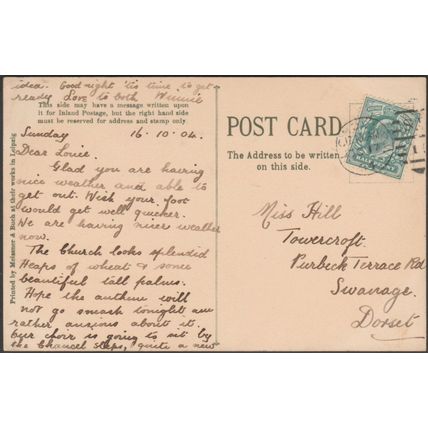 idea. Good night 'tis time to get
ready Love to both Winnie
This side may have a message written upon
it for Inland Postage, but the right hand side
must be reserved for address and stamp only
Sunday 16.10.04.
Dear Louie.
Glad you are having
nice weather and able to
get out. Wish your foot
would get well quicker.
We are having nicer weather
now.
The Church looks splendid
Heaps of wheat & some
beautiful tall palms.
Hope the anthem will
not go smash tonight am
rather anxious about it.
Our choir is going to sit by
the Chancel steps, quite a new
Printed by Meissner & Buch at their works in Leipzig
POST CARD
The Address to be written
on this side.
Miss Hill
Towercroft.
Purbeck Terrace Rd
Swanage.
Dorset